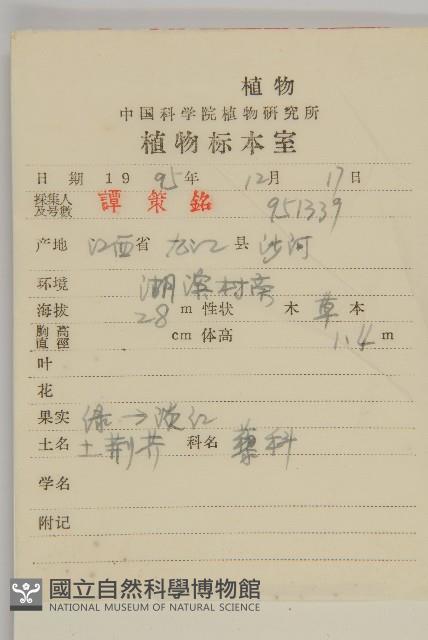 植物
中国科学院植物研究所
植物标本室
日期 1995年 12月 17日
採集人及号數 譚策銘 951339
产地 江西省 九江县 沙河
环境 湖滨村旁
海拔 28 m 性状 木 草 本
胸高直徑 cm 体高 1.4 m
叶
花
果实 绿→淡红
土名 土荆芥 科名 藜科
学名
附记
國立自然科學博物館
NATIONAL MUSEUM OF NATURAL SCIENCE